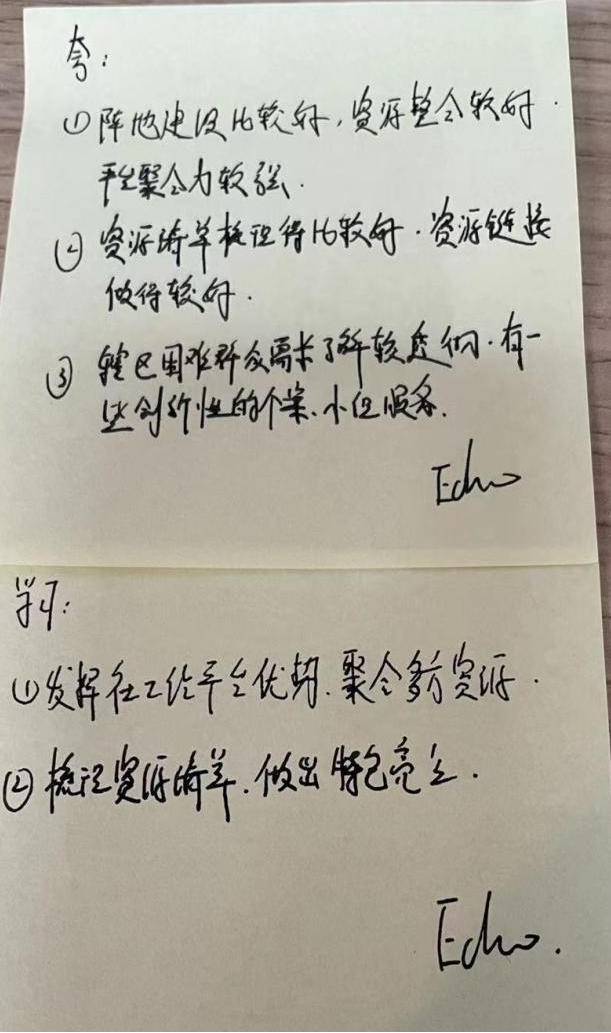 夸：
①阵地建设比较好，资源整合较好.
平台聚合力较强.
②资源清单梳理得比较好.资源链接
做得较好.
③辖区困难群众需求了解较透彻.有一
些创新性的个案、小组服务.
Echo
学习：
①发挥社工站平台优势.聚合多方资源.
②梳理资源清单.做出特色亮点.
Echo.